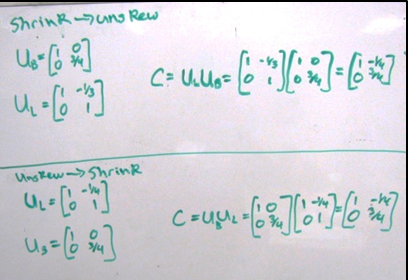 Shrink → unskew
U_B = [1 0; 0 3/4]
U_L = [1 -1/3; 0 1]
C = U_L U_B = [1 -1/3; 0 1] [1 0; 0 3/4] = [1 -1/4; 0 3/4]
Unskew → Shrink
U_L = [1 -1/4; 0 1]
U_B = [1 0; 0 3/4]
C = U_B U_L = [1 0; 0 3/4] [1 -1/4; 0 1] = [1 -1/4; 0 3/4]